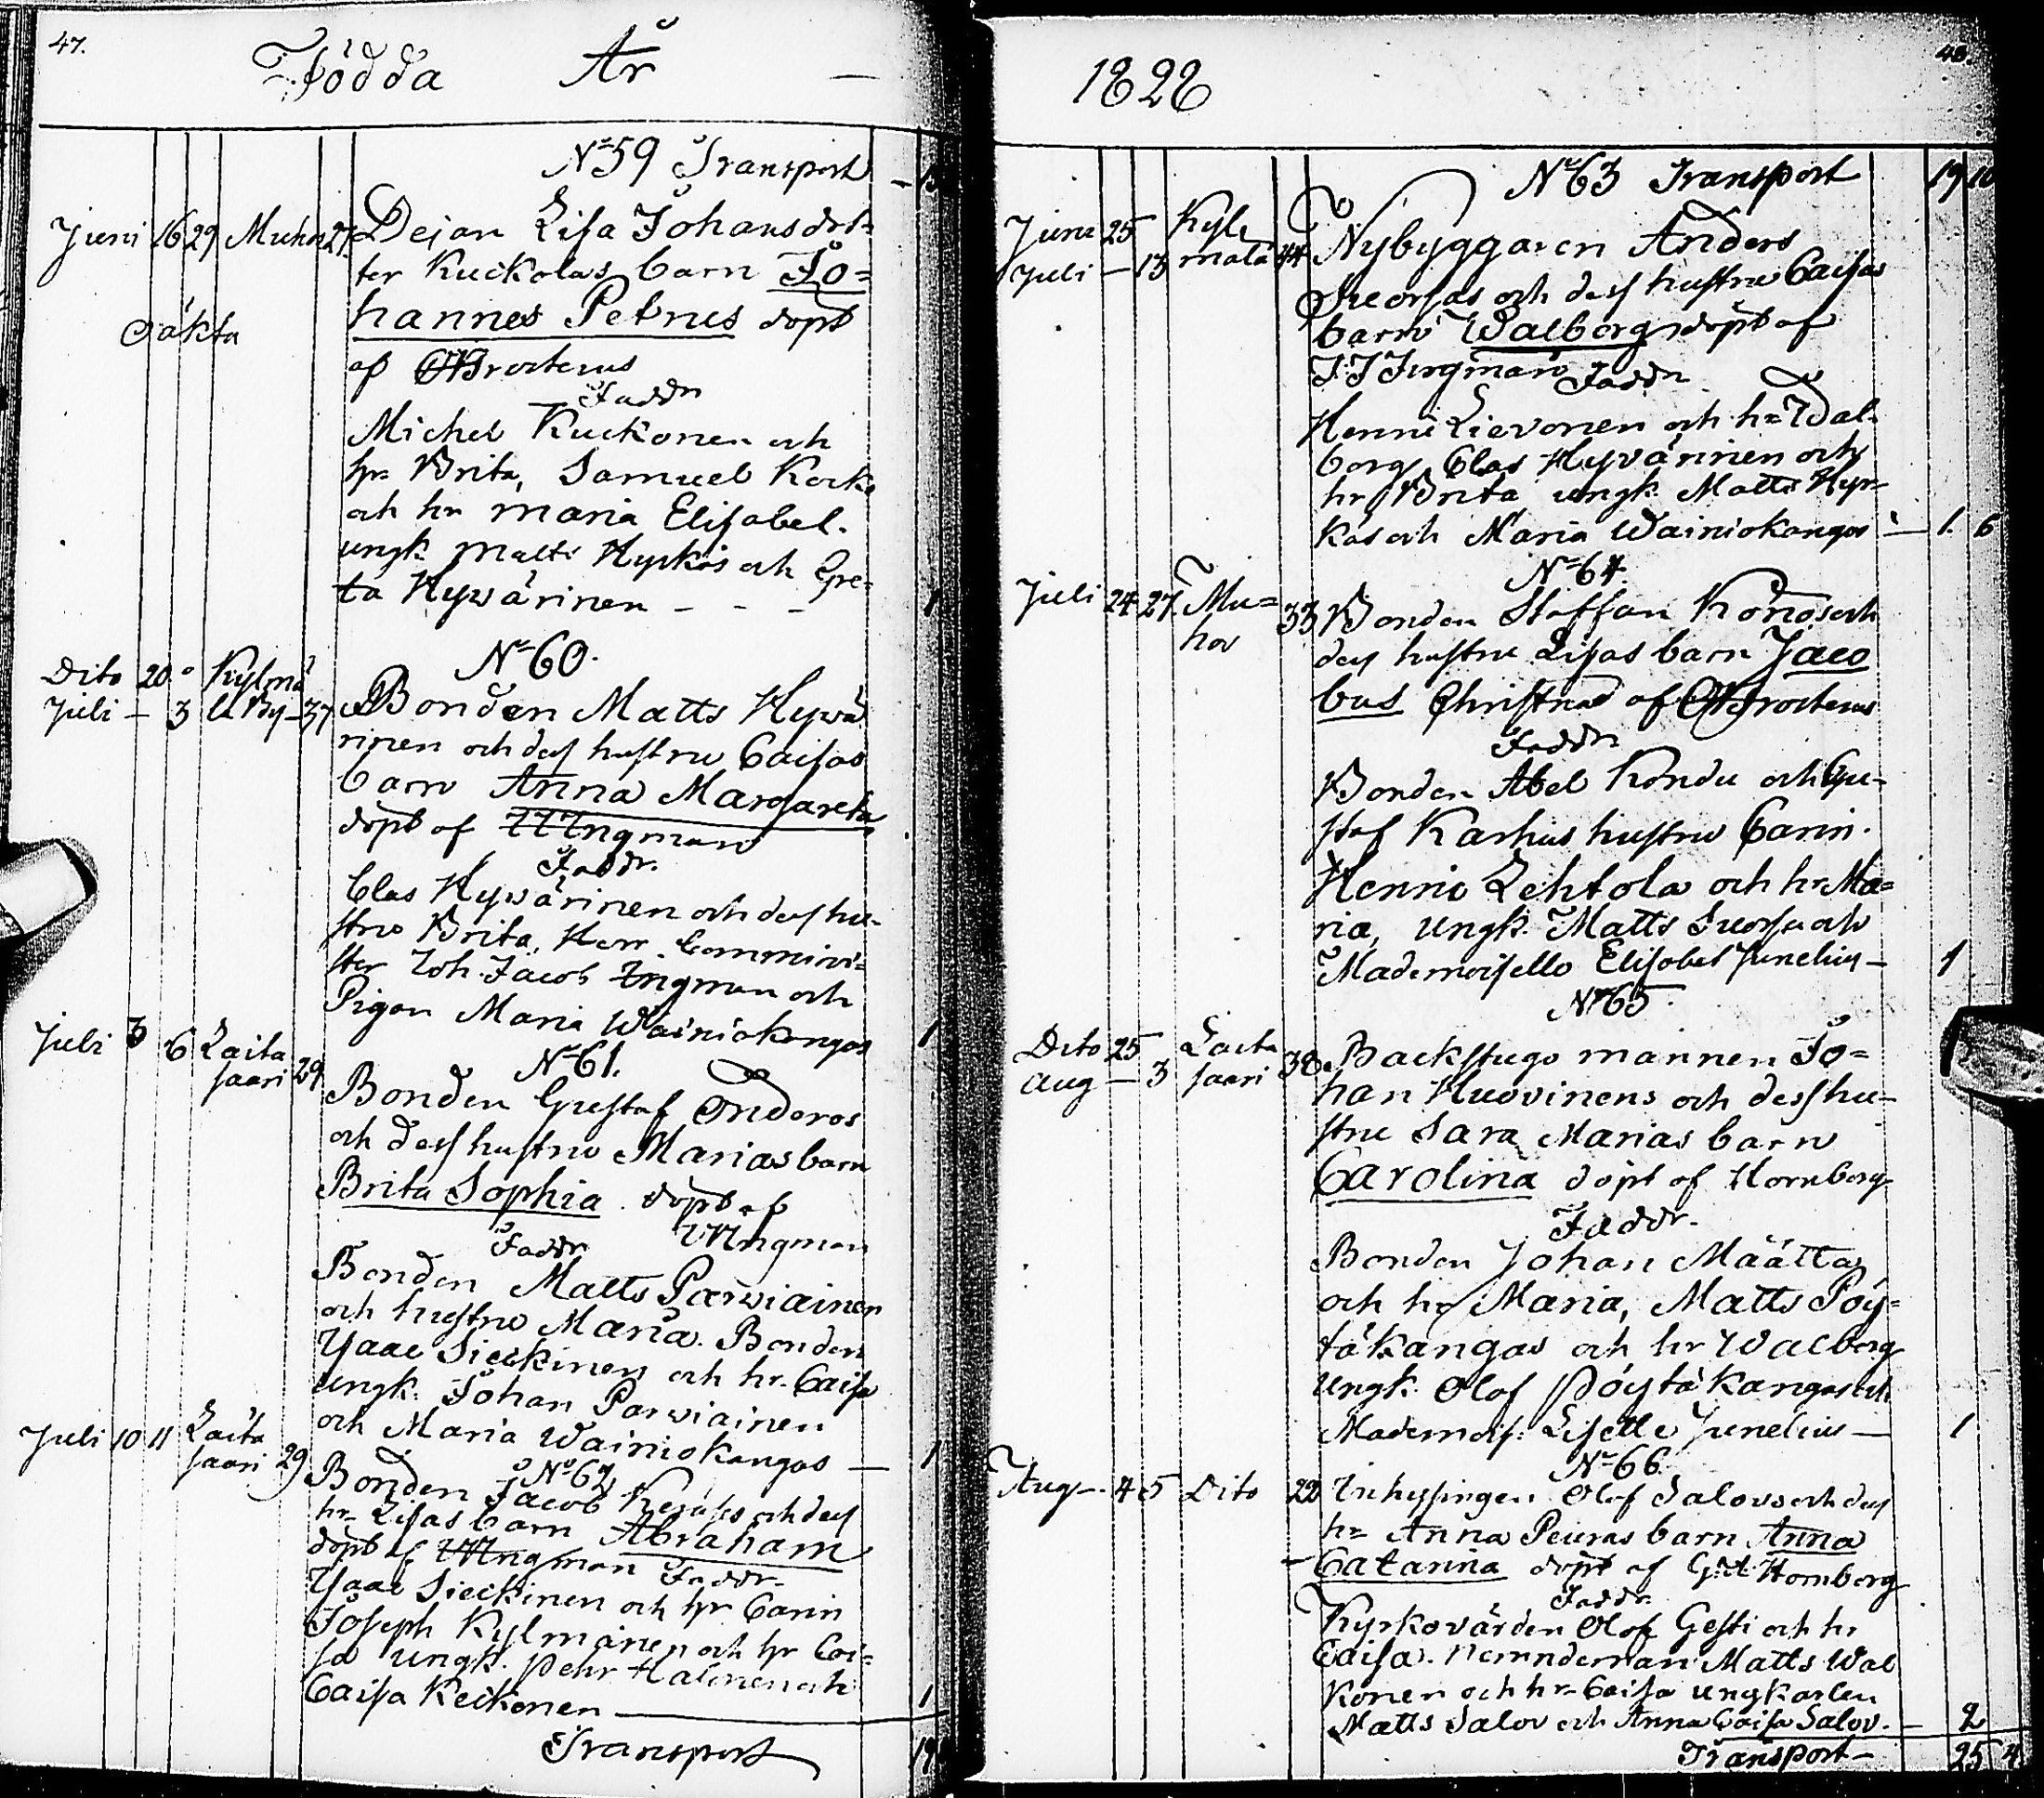 47.
Födda År —
N=o 59 Transport
Juni 16 29 Muhos 27. Dejan Lisa Johansdot=
ter Kuckolas barn Jo=
hannes Petrus döpt
oäkta
af Brosterus
Faddr
Michel Kuckonen och
hr Brita, Samuel Korke
och hr Maria Elisabet.
ungk. Matts Hyrkäs och Gre=
ta Hyvärinen - - - 1
N=o 60.
Dito 20 Kylmä
Juli — 3 lä By 37 Bonden Matts Hyvä
rinen och dess hustru Caisas
barn Anna Margareta
döpt af Ingman
Faddr.
Clas Hyvärinen och dess hu-
stru Brita, Herr Comminis=
ter Joh. Jacob Ingman och
Pigan Maria Wainiokangas 1
N=o 61.
Juli 3 6 Laita
saari 29 Bonden Gustaf Onderos
och dess hustru Marias barn
Brita Sophia. döpt af
Faddr Ingman
Bonden Matts Parviainen
och hustru Maria. Bonden
Isaac Sieckinen och hr. Caisa
ungk. Johan Parviainen
och Maria Wainiokangas — 1
N=o 62.
Juli 10 11 Laita
saari 29 Bonden Jacob Keräss och dess
hr. Lisas barn Abraham
döpt af Ingman Faddr.
Isaac Sieckinen och hr Carin
Joseph Kylmänen och hr Cai=
sa ungk. Pehr Halonen och
Caisa Keckonen — 1
Transport 19
48.
1828
N=o 63 Transport 19 10
Juni 25 Kyl
Juli — 13 malä 44 Nybyggaren Anders
Suorsas och dess hustru Caisas
barn Walborg döpt af
J J Ingman Faddr.
Henric Lievonen och h= Wal-
borg, Clas Hyvärinen och
hr Brita ungk. Matts Hyr=
käs och Maria Wainiokangas — 1. 6
N=o 64.
Juli 24 27 Mu=
hos 33 Bonden Staffan Konos och
dess hustru Lisas barn Jaco
bus Christnad af Brosterus
Faddr
Bonden Abel Kondu och Gu-
staf Karhus hustru Carin.
Henric Lehtola och hr. Ma=
ria, Ungk. Matts Suorsa och
Mademoiselle Elisabet Junelius — 1
N=o 65
Dito 25 Laita
Aug — 3 saari 38 Backstugo mannen Jo=
han Huovinens och dess hu-
stru Sara Marias barn
Carolina döpt af Hornborg
Faddr.
Bonden Johan Määtta
och hr Maria, Matts Pöy=
täkangas och hr Walborg
Ungk. Olof Pöytäkangas och
Mademois: Lisette Junelius — 1
N=o 66.
Aug — 4 5 Dito 22 Inhysingen Olof Salovs och dess
h= Anna Peuras barn Anna
Catarina döpt af Hornborg
Faddr.
Kyrkovärden Olof Gesti och hr
Caisa. Nemndeman Matts Wal
konen och hr. Caisa ungkarlen
Matts Salov och Anna Caisa Salov. — 2
Transport — 25 4